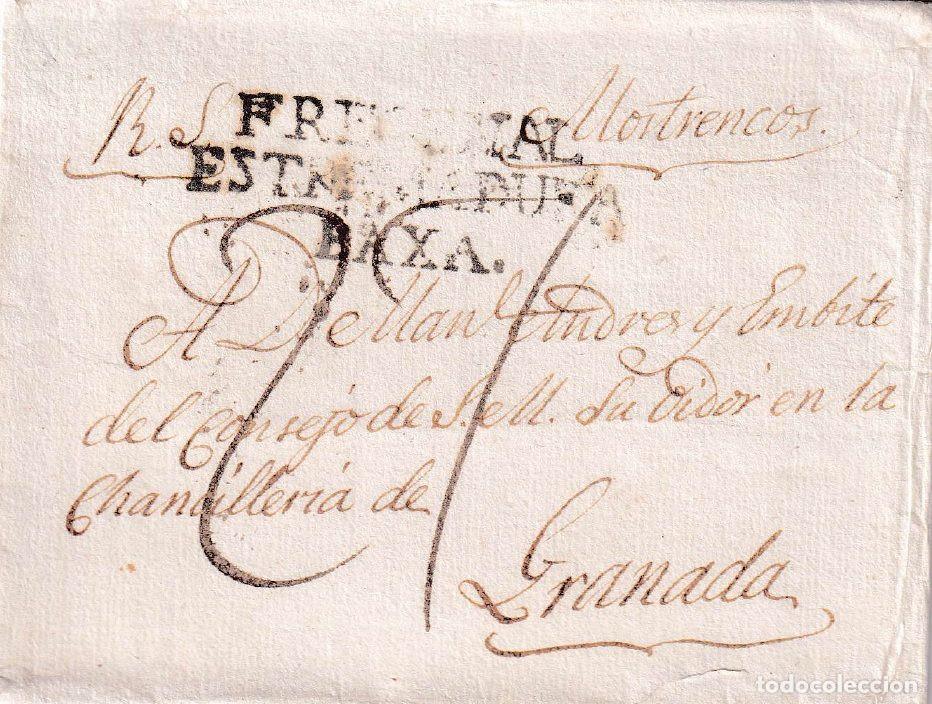 R. S. Mostrencos.
FREGENAL
ESTREMADURA
BAXA.
A Dn Manl. Andres y Embite
del Consejo de S. M. Su Oidor en la
Chancilleria de
Granada
todocoleccion